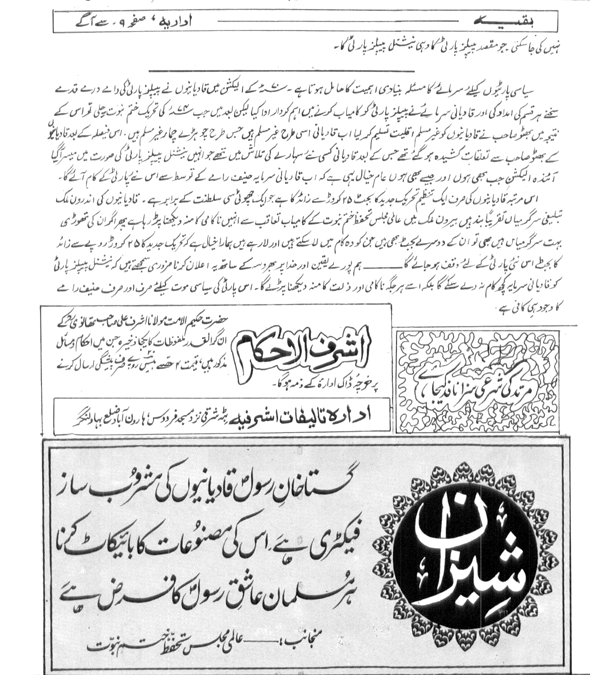 بقیہ
اداریہ، صفحہ ۹ سے آگے
نہیں کی جا سکتی جو مقصد پیپلز پارٹی کا وہی نیشنل پیپلز پارٹی کا۔
سیاسی پارٹیوں کیلئے سرمائے کا مسئلہ بنیادی اہمیت کا حامل ہوتا ہے۔ ۷۰ء کے الیکشن میں قادیانیوں نے پیپلز پارٹی کی دامے درمے قدمے
سخنے ہر قسم کی امداد کی اور قادیانی سرمایے نے پیپلز پارٹی کو کامیاب کرنے میں اہم کردار ادا کیا لیکن بعد میں جب ۷۴ء کی تحریک ختم نبوت چلی تو اس کے
نتیجہ میں بھٹو صاحب نے قادیانیوں کو غیر مسلم اقلیت تسلیم کر لیا اب قادیانی اسی طرح غیر مسلم ہیں جس طرح چوہڑے چمار غیر مسلم ہیں۔ اس فیصلہ کے بعد قادیانیوں
کے بھٹو صاحب سے تعلقات کشیدہ ہو گئے تھے جس کے بعد قادیانی کسی نئے سہارے کی تلاش میں تھے جو انہیں نیشنل پیپلز پارٹی کی صورت میں میسر آ گیا
آئندہ الیکشن جب بھی ہوں اور جیسے بھی ہوں عام خیال یہی ہے کہ اب قادیانی سرمایہ حنیف رامے کے توسط سے اس نئے پارٹی کے کام آئے گا۔
اس مرتبہ قادیانیوں کی صرف ایک تنظیم تحریک جدید کا بجٹ ۲۵ کروڑ سے زائد کا ہے جو ایک چھوٹی سی سلطنت کے برابر ہے۔ قادیانیوں کی اندرون ملک
تبلیغی سرگرمیاں تقریباً بند ہیں بیرون ملک میں عالمی مجلس تحفظ ختم نبوت کے کامیاب تعاقب سے انہیں ناکامی کا منہ دیکھنا پڑ رہا ہے پھر اگر ان کی تھوڑی
بہت سرگرمیاں ہیں بھی تو ان کے دوسرے بجٹ بھی ہیں جن کو وہ کام میں لا سکتے ہیں اور لا رہے ہیں ہمارا خیال ہے کہ تحریک جدید کا ۲۵ کروڑ روپے سے زائد
کا بجٹ اس نئی پارٹی کے لئے وقف ہو جائے گا۔ ہم پورے یقین اور خدا پر بھروسہ کے ساتھ یہ اعلان کرنا ضروری سمجھتے ہیں کہ نیشنل پیپلز پارٹی
کو قادیانی سرمایہ کچھ کام نہ دے سکے گا بلکہ اسے ہر جگہ ناکامی اور ذلت کا منہ دیکھنا پڑے گا۔ اس پارٹی کی سیاسی موت کیلئے صرف اور صرف حنیف رامے
کا وجود ہی کافی ہے
اشرف الاحکام
حضرت حکیم الامت مولانا اشرف علی صاحب تھانوی کے
گرانقدر ملفوظات کا یکجا ذخیرہ جن میں احکام و مسائل
مذکور ہیں، قیمت
پیشگی ارسال کرنے
پر خرچہ ڈاک ادارہ کے ذمہ ہوگا۔
ادارہ تالیفات اشرفیہ
نزد مسجد فردوس ہارون آباد ضلع بہاولنگر
مرتد کی شرعی سزا نافذ کیجائے
شیزان
گستاخانِ رسولؐ قادیانیوں کی مشروب ساز
فیکٹری ہے، اس کی مصنوعات کا بائیکاٹ کرنا
ہر مسلمان عاشقِ رسولؐ کا فرض ہے
منجانب: عالمی مجلس تحفظ ختم نبوت